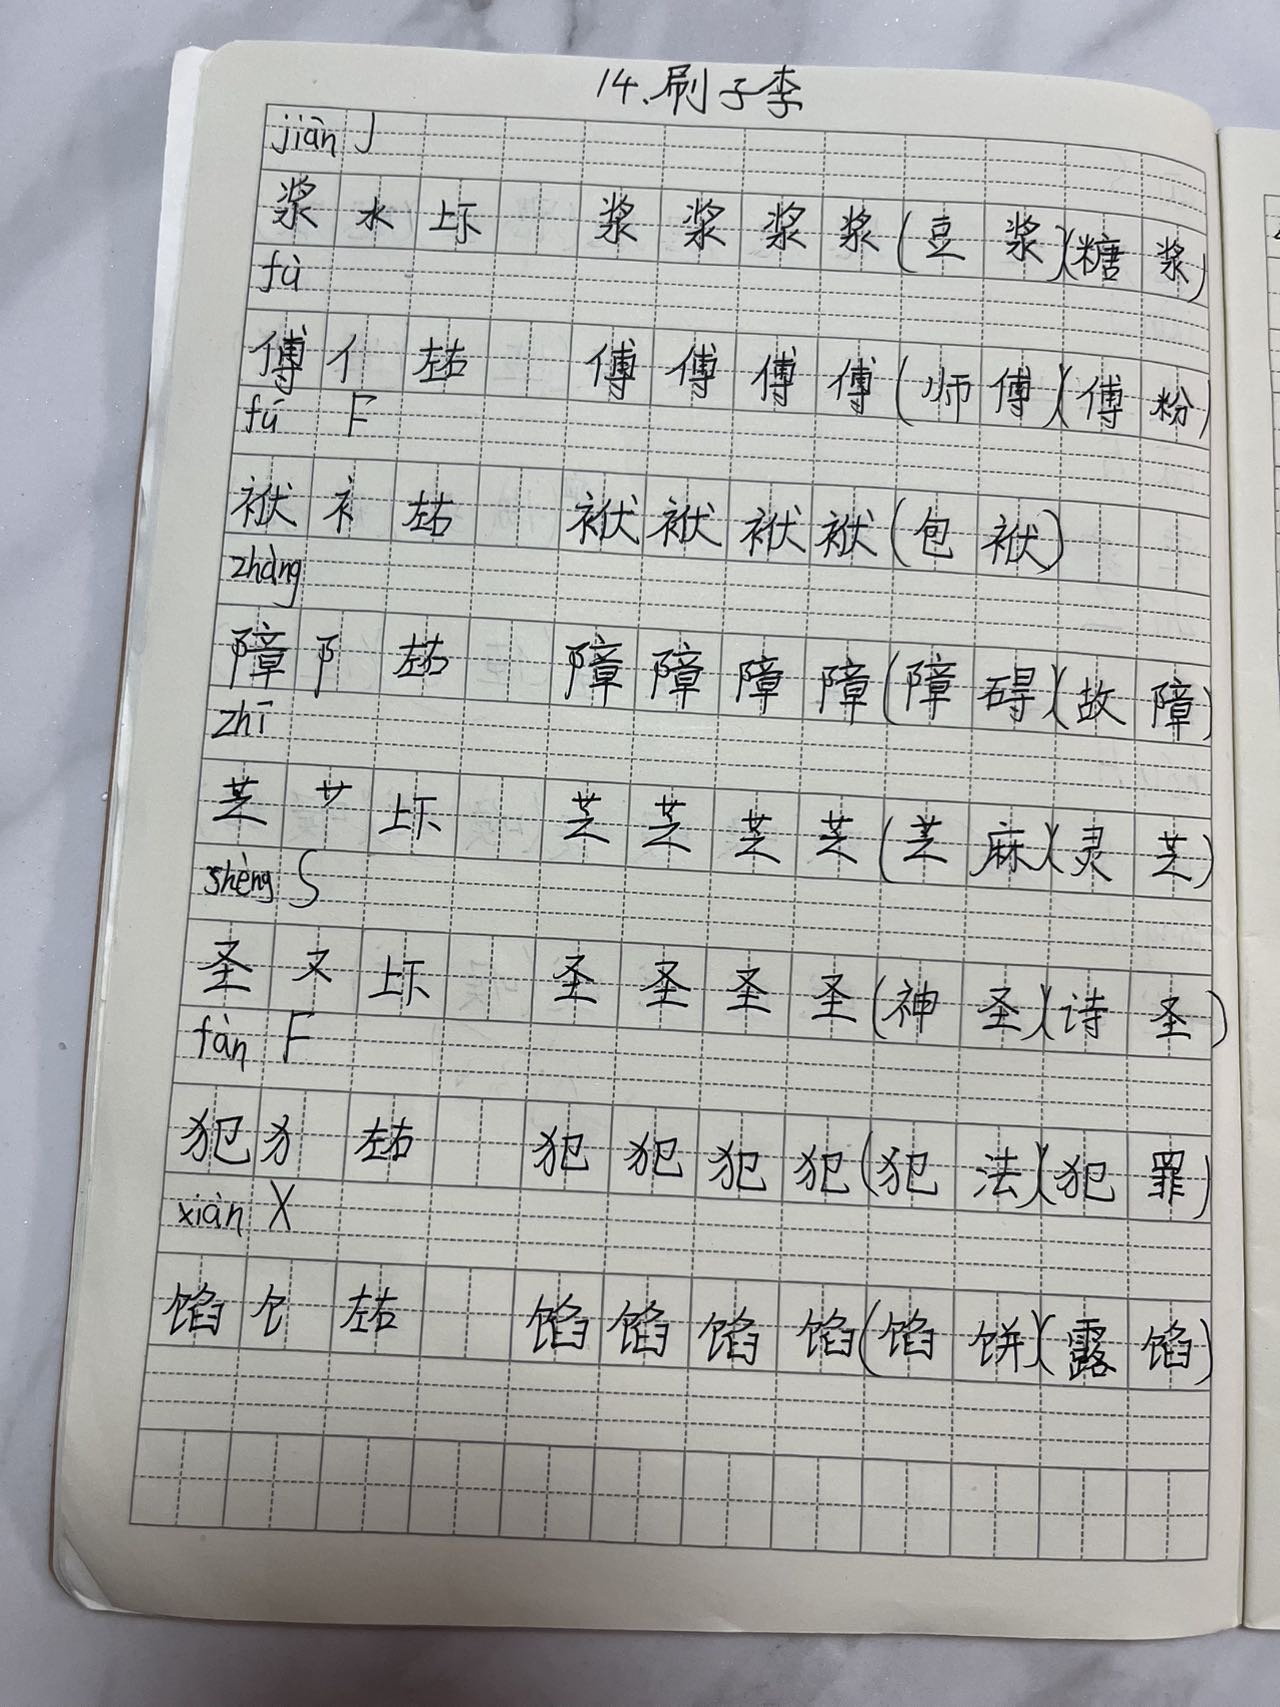 14.刷子李
jiān J
浆 水 上下 浆 浆 浆 浆 (豆 浆)(糖 浆)
fù
傅 亻 左右 傅 傅 傅 傅 (师 傅)(傅 粉)
fú F
袱 衤 左右 袱 袱 袱 袱 (包 袱)
zhàng
障 阝 左右 障 障 障 障 (障 碍)(故 障)
zhī
芝 艹 上下 芝 芝 芝 芝 (芝 麻)(灵 芝)
shèng S
圣 又 上下 圣 圣 圣 圣 (神 圣)(诗 圣)
fàn F
犯 犭 左右 犯 犯 犯 犯 (犯 法)(犯 罪)
xiàn X
馅 饣 左右 馅 馅 馅 馅 (馅 饼)(露 馅)